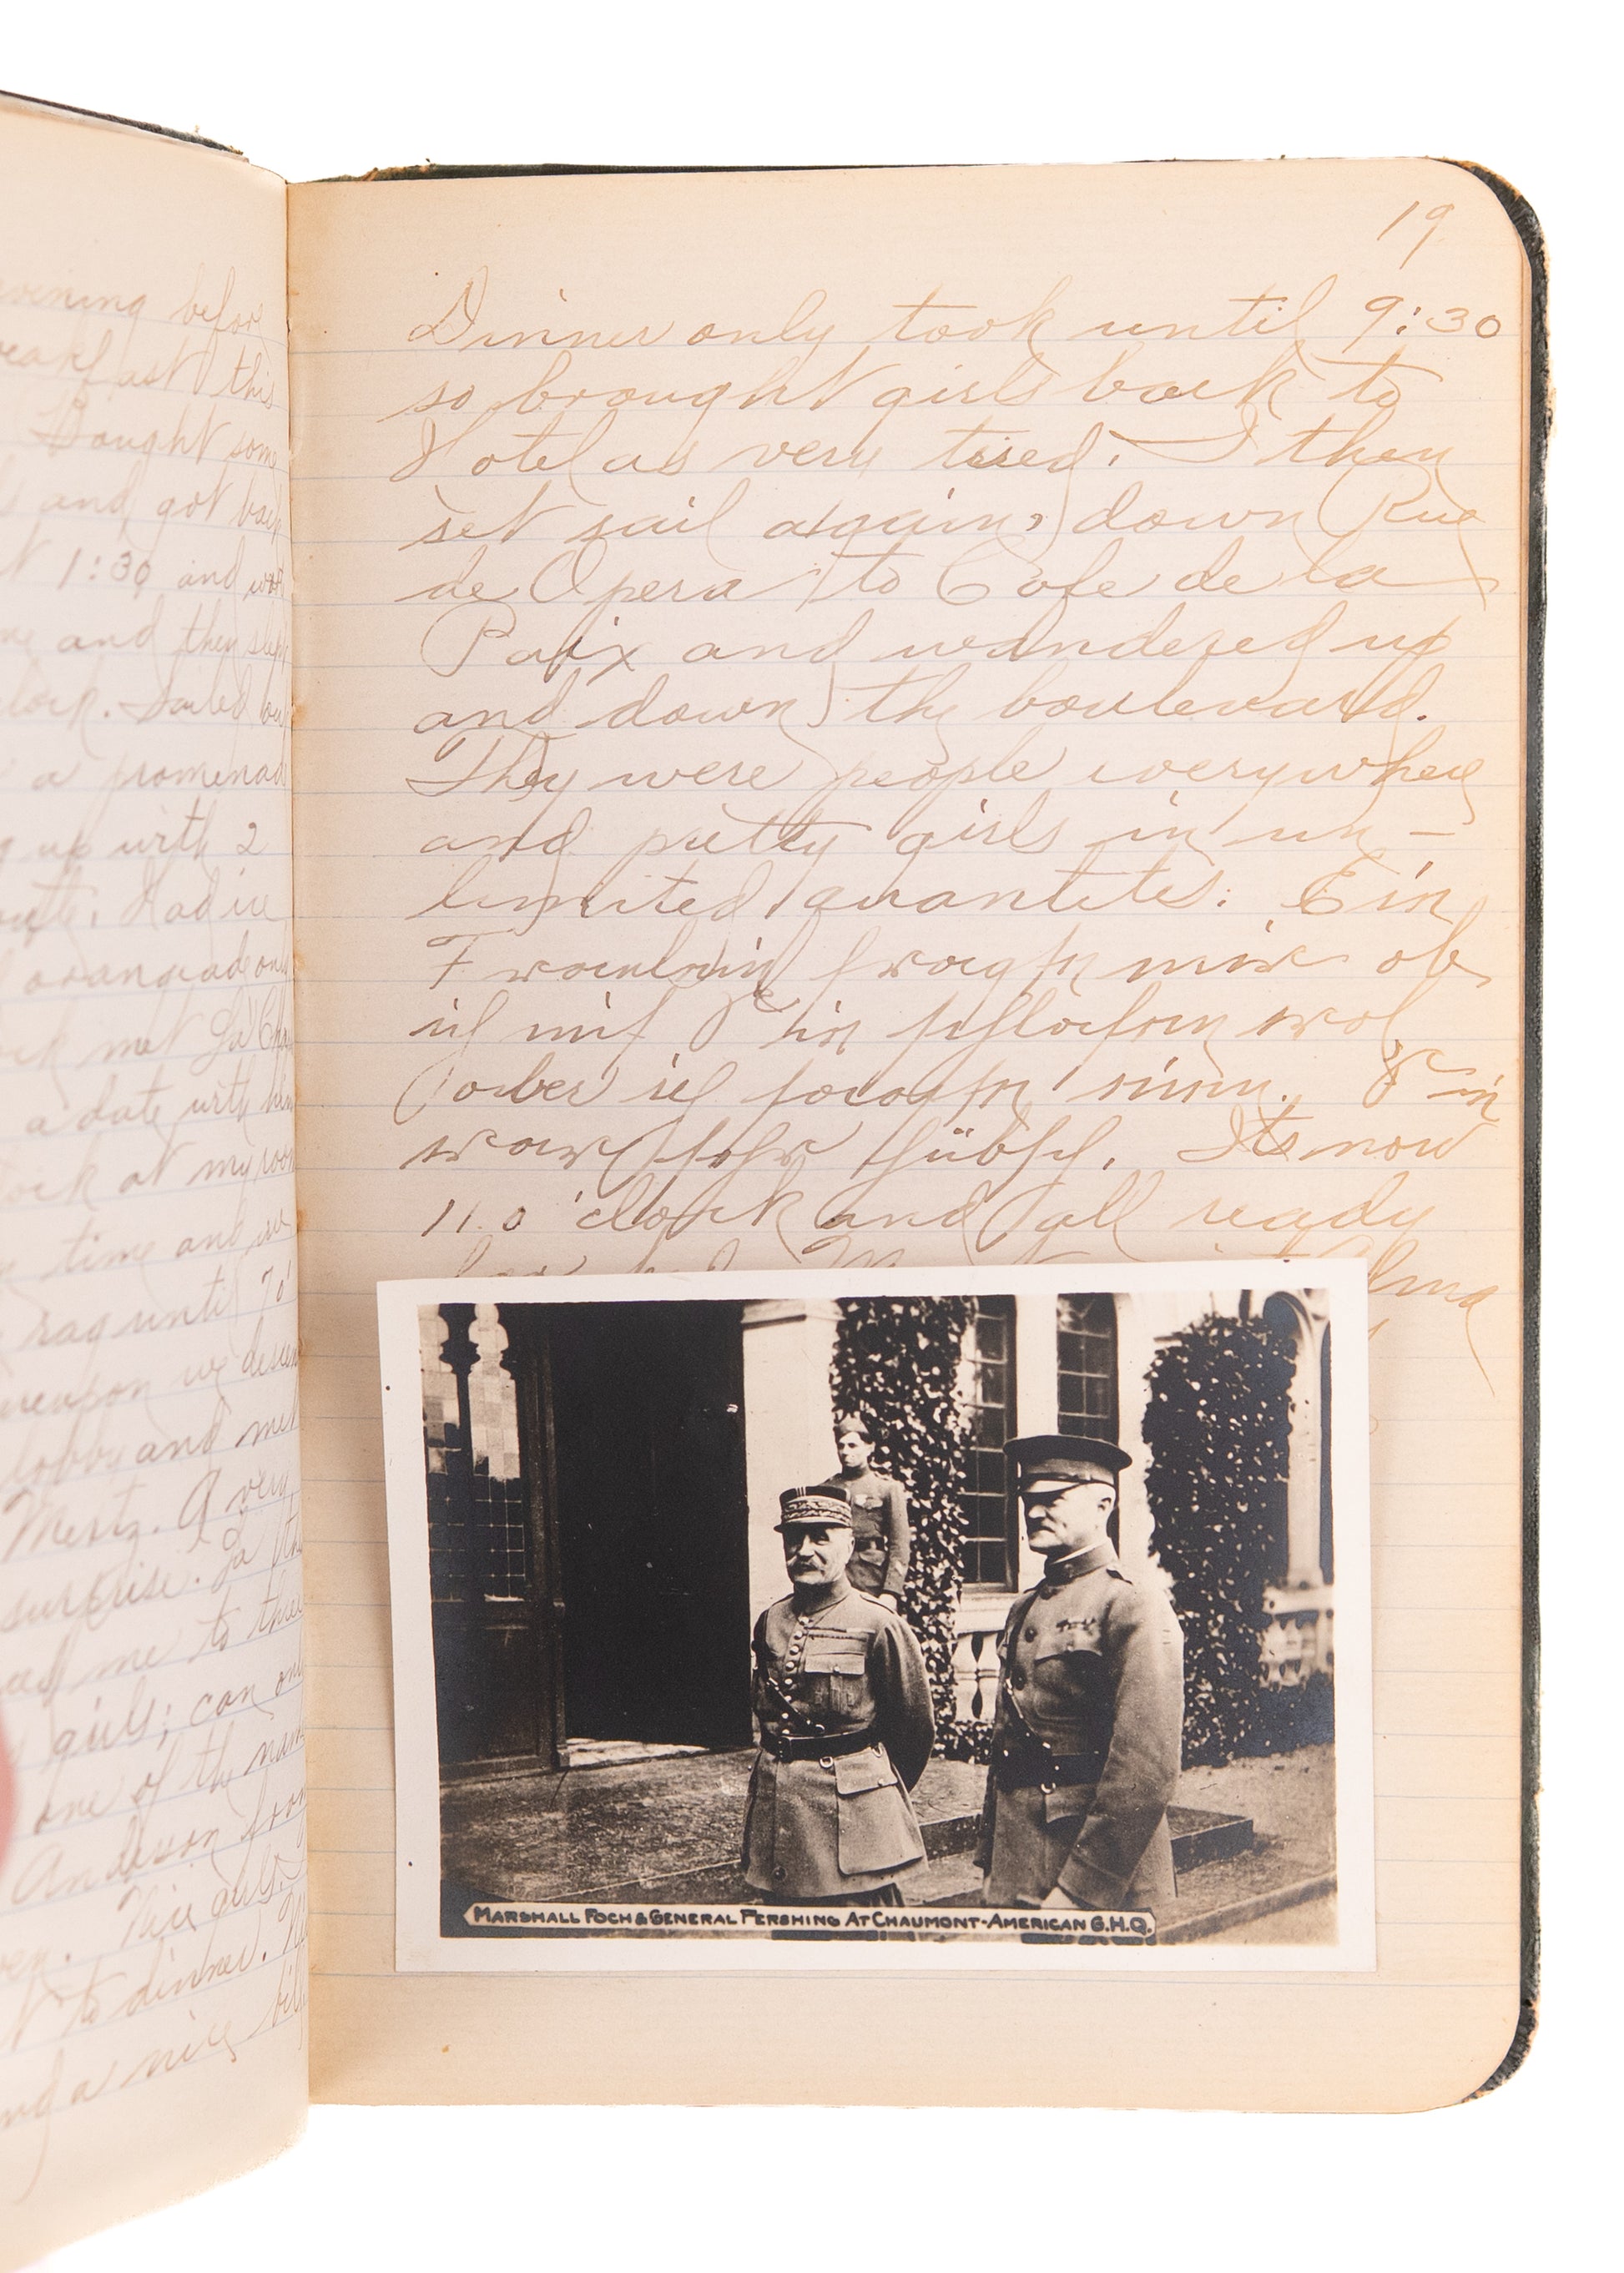 evening before
breakfast this
Bought some
and got back
1:30 and
me and then slept
clock. Sailed out
a promenade
up with 2
Had ice
orangeade only
met La
a date with him
at my room
time and we
rag until 7 o'
we descen
lobby and met
Mertz. A very
surprise. La
me to three
girls; can only
one of the name
Anderson from
Nice girls.
to dinner.
and a nice
19
Dinner only took until 9:30
so brought girls back to
Hotel as very tired. I then
set sail again, down Rue
de Opera to Cafe de la
Paix and wandered up
and down the boulevard.
They were people everywhere
and pretty girls in un-
limited quantites. Ein
Fraulein fragte mir ob
ich mit Sie schlafen wol
aber ich sagte nein. Sie
war sehr hübsch. Its now
11 o'clock and all ready
MARSHALL FOCH & GENERAL PERSHING AT CHAUMONT-AMERICAN G.H.Q.